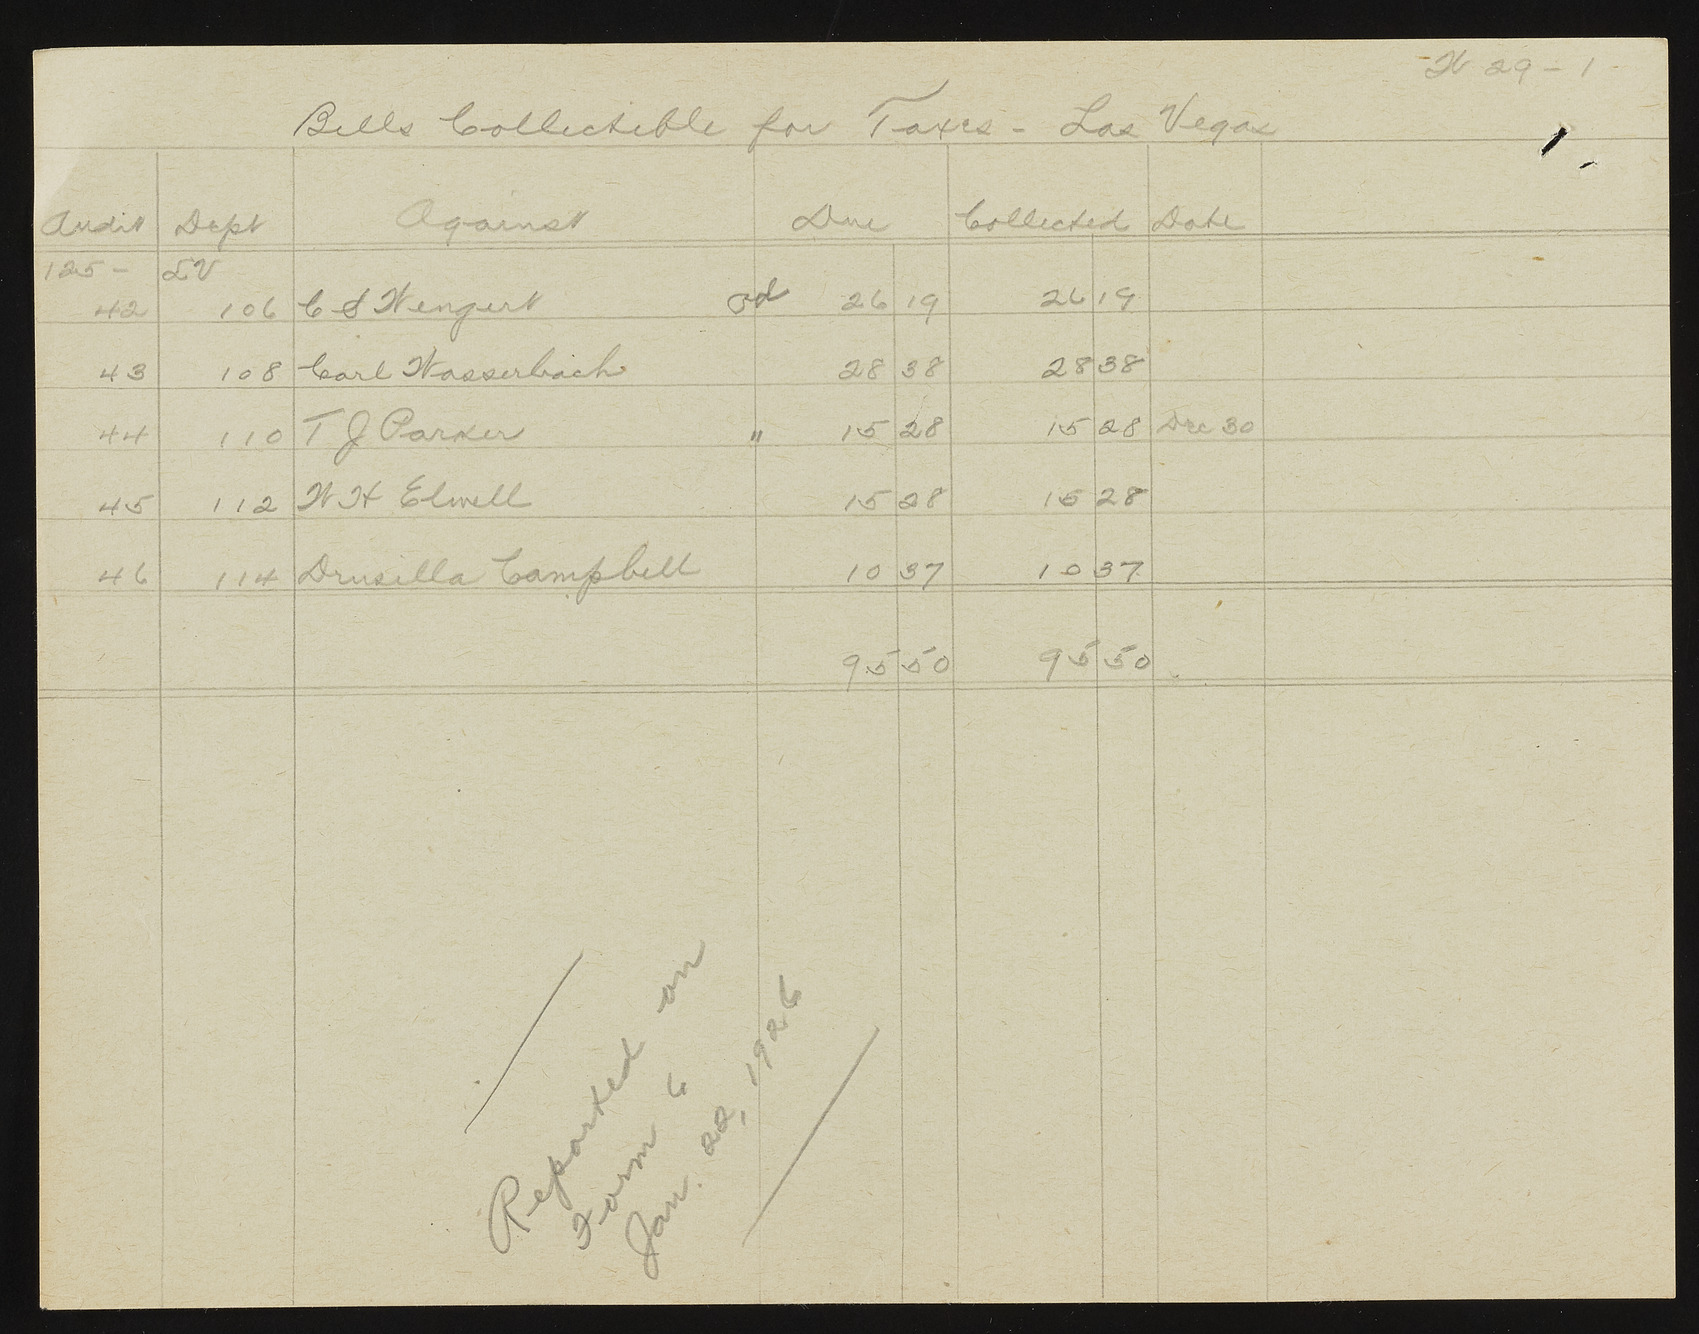 W 29 - 1
Bills Collectible for Taxes - Las Vegas
Audit Dept Against Due Collected Date
125 - LV
42 106 C S Wengert pd 26 19 26 19
43 108 Carl Wasserbach 28 38 28 38
44 110 T J Parker " 15 28 15 28 Dec 30
45 112 W H Elwell 15 28 15 28
46 114 Drusilla Campbell 10 37 10 37
95 50 95 50
Reported on
Form 6
Jan. 22, 1926